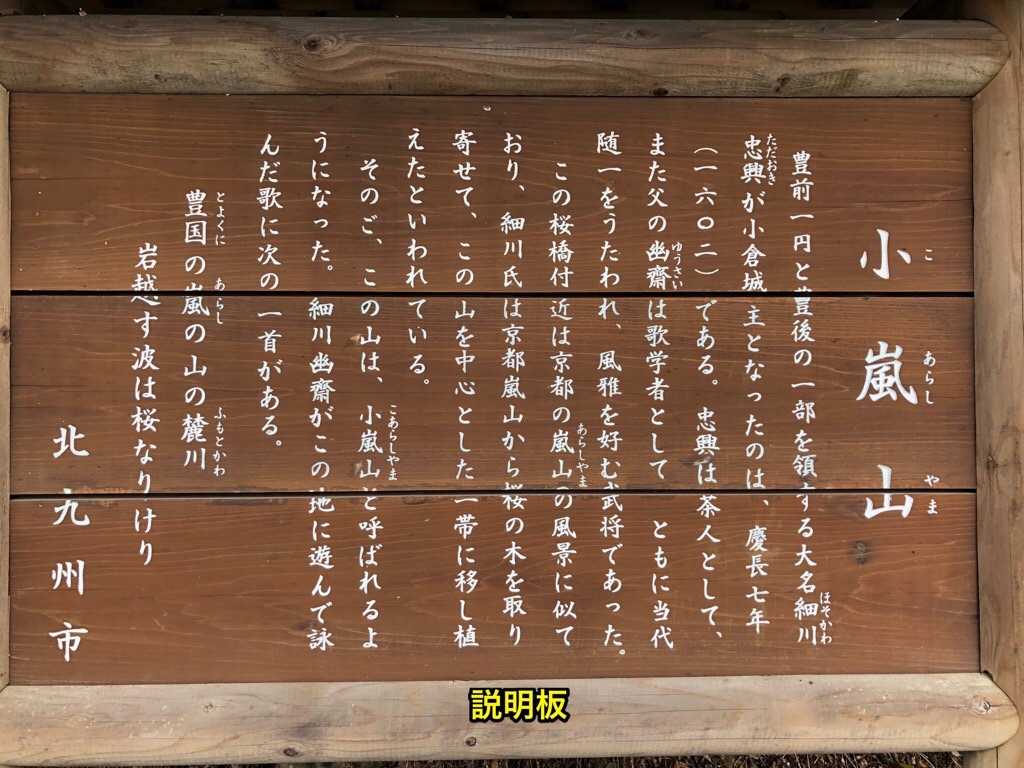 小嵐山
こ あらし やま
豊前一円と豊後の一部を領する大名細川
ほそかわ
忠興が小倉城主となったのは、慶長七年
ただおき
(一六〇二)である。忠興は茶人として、
また父の幽齋は歌学者として ともに当代
ゆうさい
随一をうたわれ、風雅を好む武将であった。
この桜橋付近は京都の嵐山の風景に似て
あらしやま
おり、細川氏は京都嵐山から桜の木を取り
寄せて、この山を中心とした一帯に移し植
えたといわれている。
そのご、この山は、小嵐山と呼ばれるよ
こあらしやま
うになった。細川幽齋がこの地に遊んで詠
んだ歌に次の一首がある。
豊国の嵐の山の麓川
とよくに あらし ふもとかわ
岩越す波は桜なりけり
北九州市
説明板